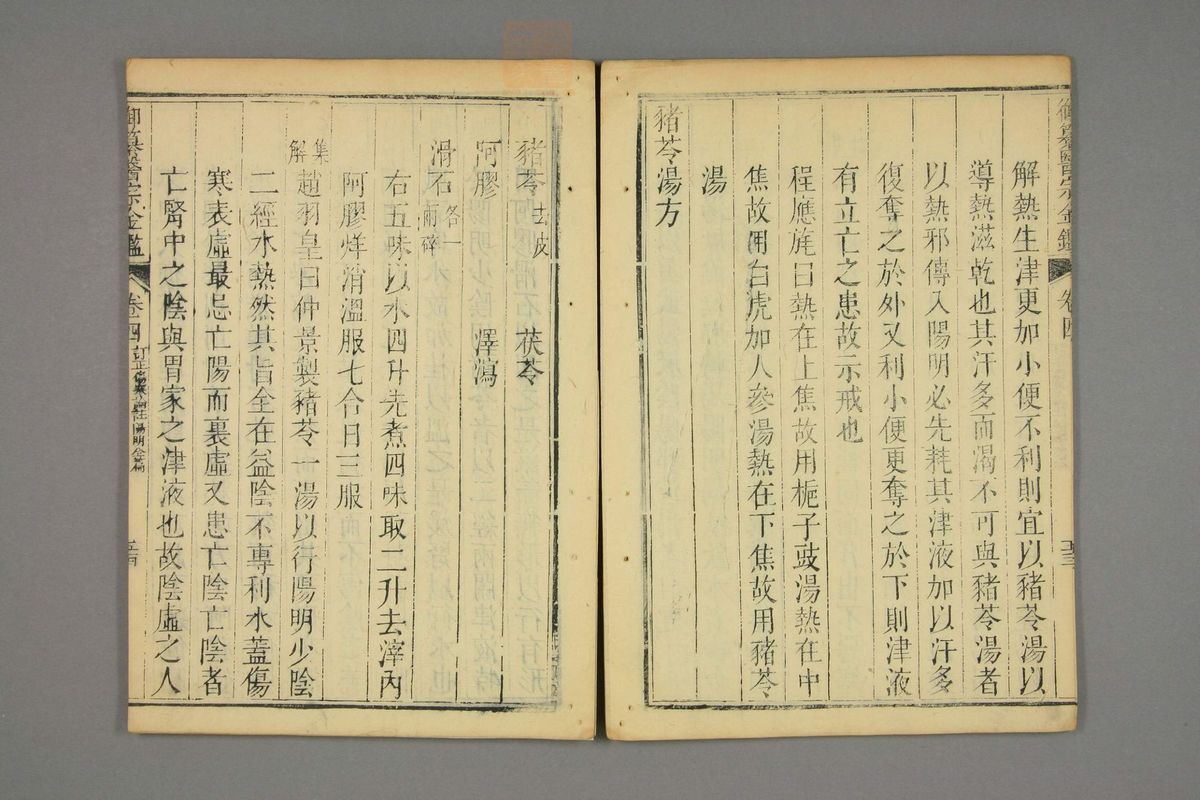 御纂醫宗金鑑 卷四 五三
解熱生津更加小便不利則宜以豬苓湯以
導熱滋乾也其汗多而渴不可與豬苓湯者
以熱邪傳入陽明必先耗其津液加以汗多
復奪之於外又利小便更奪之於下則津液
有立亡之患故示戒也
程應旄曰熱在上焦故用梔子豉湯熱在中
焦故用白虎加人參湯熱在下焦故用豬苓
湯
豬苓湯方
豬苓去皮 茯苓
阿膠 澤瀉
滑石各一兩碎
右五味以水四升先煮四味取二升去滓內
阿膠烊消溫服七合日三服
集解
趙羽皇曰仲景製豬苓一湯以行陽明少陰
二經水熱然其旨全在益陰不專利水蓋傷
寒表虛最忌亡陽而裏虛又患亡陰亡陰者
亡腎中之陰與胃家之津液也故陰虛之人
御纂醫宗金鑑 卷四 訂正傷寒論註陽明全篇